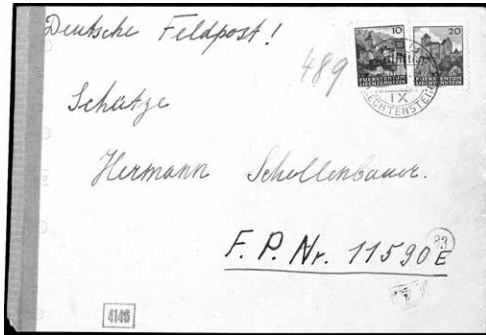 Deutsche Feldpost!
10
20
FUERSTENTUM
LIECHTENSTEIN
FUERSTENTUM
LIECHTENSTEIN
IX
LIECHTENSTEIN
489
Schütze
Hermann Schollenbauer.
F. P. Nr. 11590 E
83
4146